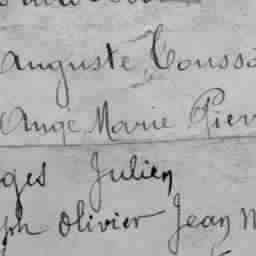 Auguste Toussa
Ange Marie Pierr
ges Julien
ph Olivier Jean M